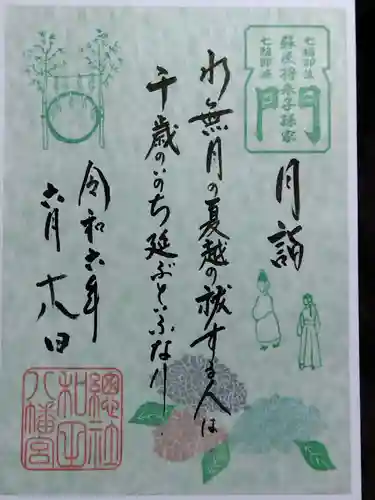 七難即滅
蘇民将来子孫家
七福即生
門
月詣
水無月の夏越の祓する人は
千歳のいのち延ぶといふなり
令和六年
六月 日
總社
和田
八幡宮